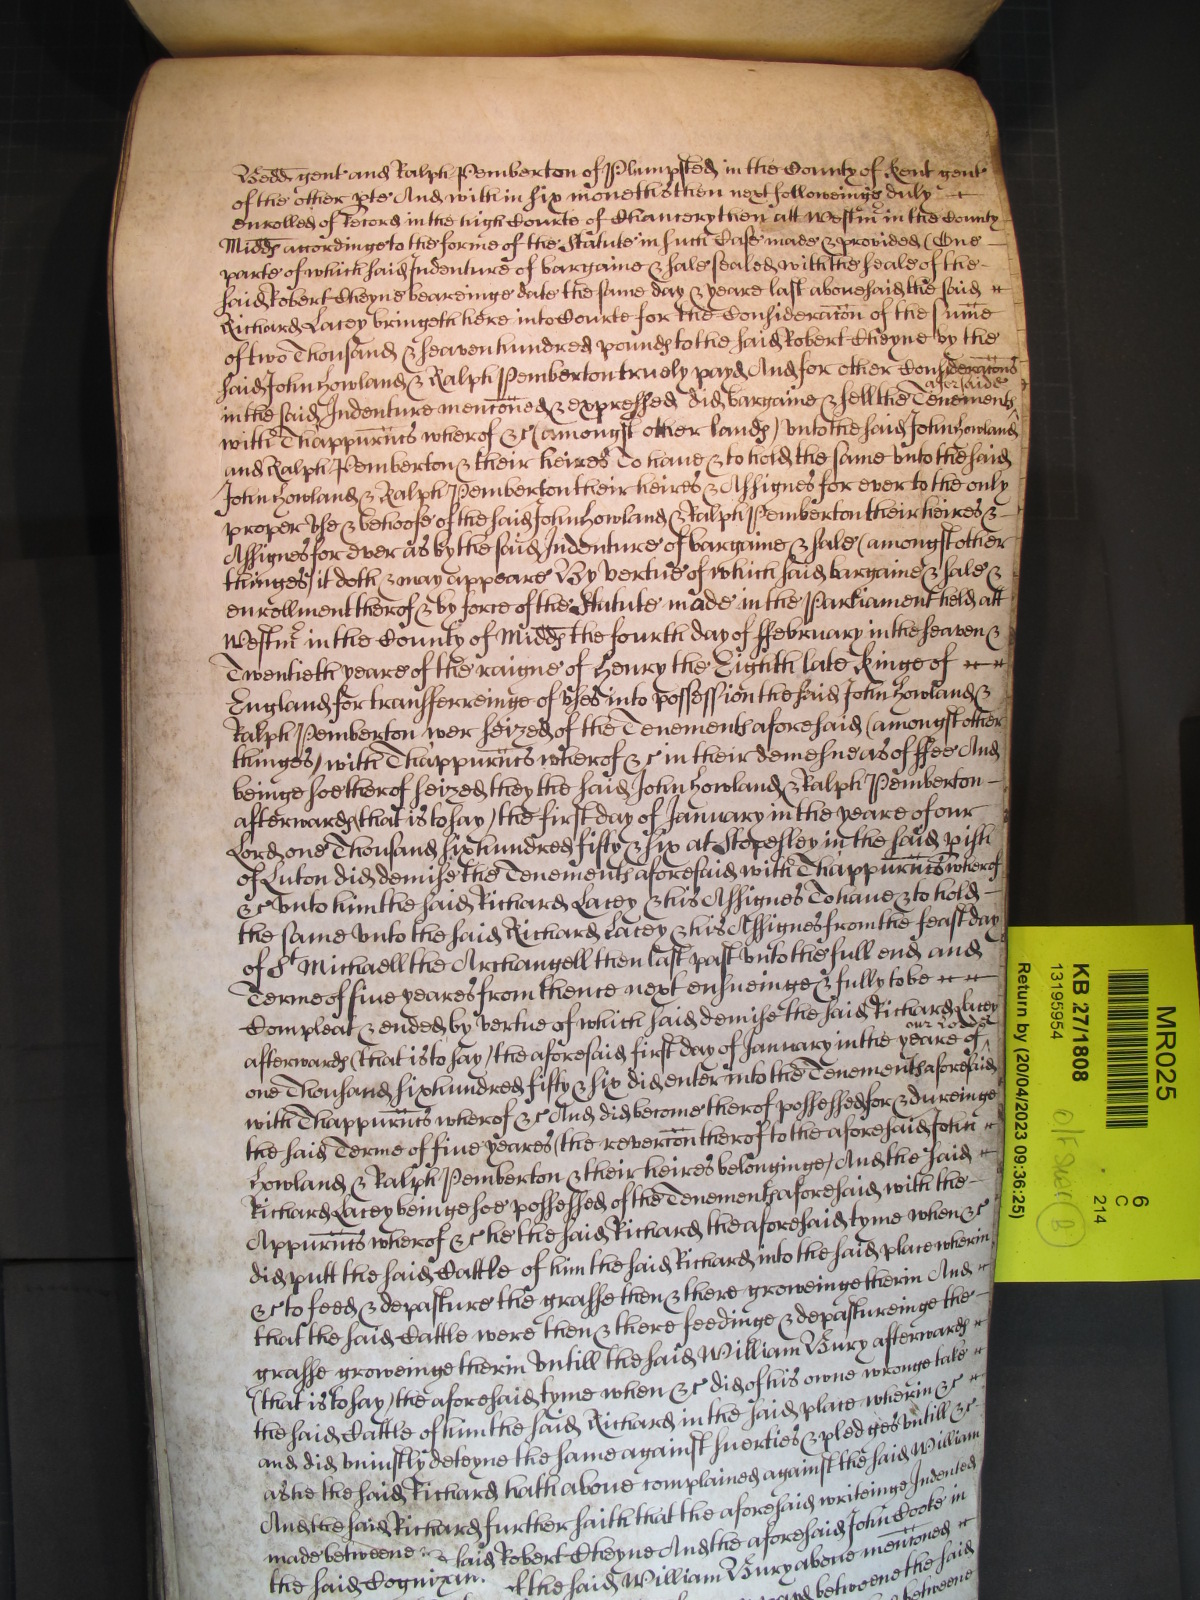 Bedd gent and Ralph Pemberton of Plumpsted in the County of Kent gent
of the other pte And within six monethes then next followeinge duly
enrolled of record in the high Courte of Chancery then att Westmr in the County
Midds accordinge to the forme of the Statute in such Case made & provided (One
parte of which said Indenture of bargaine & sale sealed with the seale of the
said Robert Cheyne beareinge date the same day & yeare last abovesaid the said
Richard Lacey bringeth here into Courte for the Consideracon of the summe
of two Thousand & seaven hundred pounds to the said Robert Cheyne by the
said John Howland & Ralph Pemberton truely payd And for other Consideracons
in the said Indenture menconed & expressed did bargaine & sell the Tenements aforsaide
with Thappurtncs wherof &c (amongst other lands) unto the said John Howland
and Ralph Pemberton & their heires To have & to hold the same unto the said
John Howland & Ralph Pemberton their heires & Assignes for ever to the only
proper use & behoofe of the said John Howland & Ralph Pemberton their heires &
Assignes for ever as by the said Indenture of bargaine & sale (amongst other
thinges) it doth & may appeare By vertue of which said bargaine & sale &
enrollment therof & by force of the Statute made in the Parliament held att
Westmr in the County of Midds the fourth day of ffebruary in the seaven &
Twentieth yeare of the raigne of Henry the Eighth late Kinge of
England for transferreinge of uses into possession the said John Howland &
Ralph Pemberton wer seized of the Tenements aforesaid (amongst other
thinges) with Thappurtncs wherof &c in their demesne as of ffee And
beinge soe therof seized they the said John Howland & Ralph Pemberton
afterwards (that is to say) the first day of January in the yeare of our
Lord one Thousand six hundred fifty & six at Stopesley in the said pish
of Luton did demise the Tenements aforesaid with Thappurtncs wherof
&c unto him the said Richard Lacey & his Assignes To have & to hold
the same unto the said Richard Lacey & his Assignes from the feast day
of St Michaell the Archangell then last past unto the full end and
Terme of five yeares from thence next ensueinge & fully to be
Compleat & ended by vertue of which said demise the said Richard Lacey
afterwards (that is to say) the aforesaid first day of January in the yeare of our Lord
one Thousand six hundred fifty & six did enter into the Tenements aforesaid
with Thappurtncs wherof &c And did become therof possessed for & dureinge
the said Terme of five yeares (the revercon therof to the aforesaid John
Howland & Ralph Pemberton & their heires belonginge) And the said
Richard Lacey beinge soe possessed of the Tenements aforesaid with the
Appurtncs wherof &c he the said Richard the aforesaid tyme when &c
did putt the said Cattle of him the said Richard into the said place wherin
&c to feed & depasture the grasse then & there groweinge therin And
that the said Cattle were then & there feedinge & depastureinge the
grasse groweinge therin untill the said William Bury afterwards
(that is to say) the aforesaid tyme when &c did of his owne wronge take
the said Cattle of him the said Richard in the said place wherin &c
and did uniustly deteyne the same against suerties & pledges untill &c
as he the said Richard hath above complained against the said William
And the said Richard further saith that the aforesaid writeinge Indented
made betweene said Robert Cheyne And the aforesaid John Cooke in
the said Cognizan the said William Bury above menconed
and betweene the said
betweene
MR025
6
C
214
KB 27/1808
13195954
Return by (20/04/2023 09:36:25)